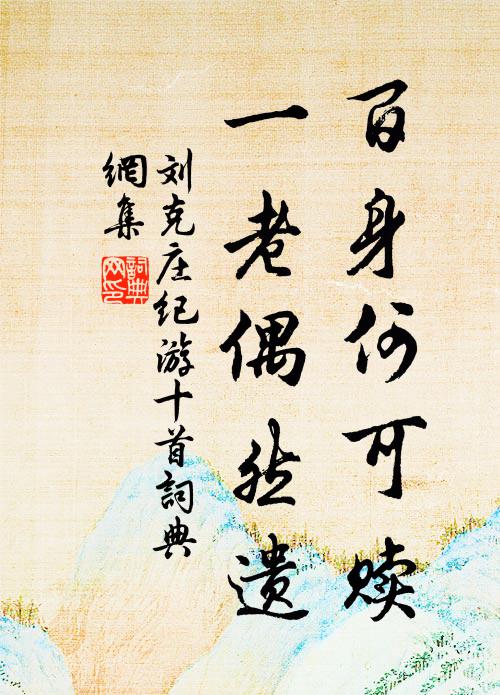 百身何可赎
一老偶然遗
刘克庄纪游十首詞典
網集
詞典
网印